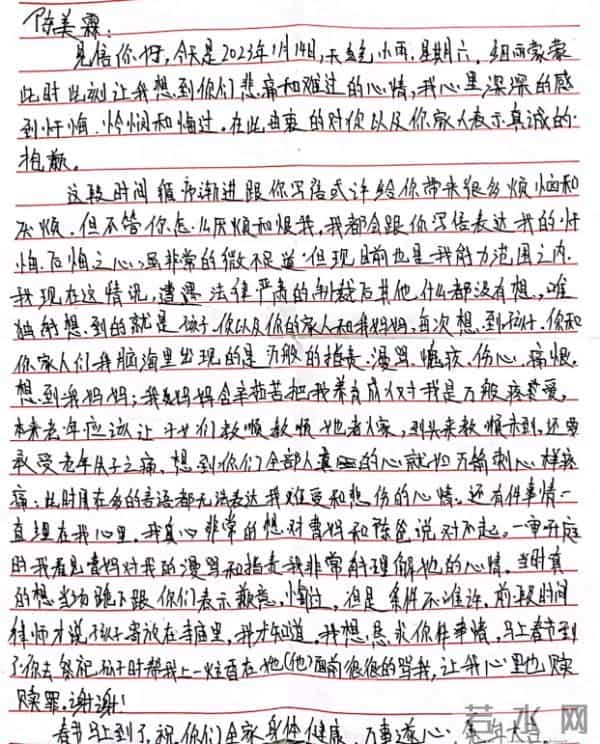 陈美霖:
见信你好,今天是2023年1月14日,天气小雨,星期六,细雨蒙蒙
此时此刻让我想到你们悲痛和难过的心情,我心里深深的感
到忏悔、懊悔和悔过。在此由衷的对你以及你家人表示真诚的
抱歉。
这段时间循序渐进跟你写信或许给你带来很多烦恼和
厌烦。但不管你怎么厌烦和恨我,我都会跟你写信表达我的忏
悔、后悔之心,虽非常的微不足道,但现目前也是我能力范围之内
我现在这情况,遭受法律严肃的制裁后其他什么都没有想,唯
独能想到的就是孩子、你以及你的家人和我妈妈,每次想到孩子、你和
你家人们我脑海里出现的是万般的指责、漫骂、愧疚、伤心、痛恨。
想到我妈妈;我妈妈含辛茹苦把我养育成人对我是万般疼爱,
本来老年应该让子女们教顺教顺她老人家,到头来教顺未到,还要
承受老年失子之痛,想到你们全部人真的心就如万箭刺心样疼
痛;此时用在多的言语都无法表达我难受和悲伤的心情。还有件事情一
直埋在我心里,我真心非常的想对曹妈和陈爸说对不起。一审开庭
时我看见曹妈对我的漫骂和指责我非常能理解她的心情,当时真
的想当场跪下跟你们表示歉意、悔过,但是条件不准许,前段时间
律师才说孩子寄放在寺庙里,我才知道,我想恳求你件事情,马上春节到
了你去祭祀孩子时帮我上一炷香在她(他)面前狠狠的骂我,让我心里也赎
赎罪。谢谢!
春节马上到了,祝你们全家身体健康、万事遂心
若水网